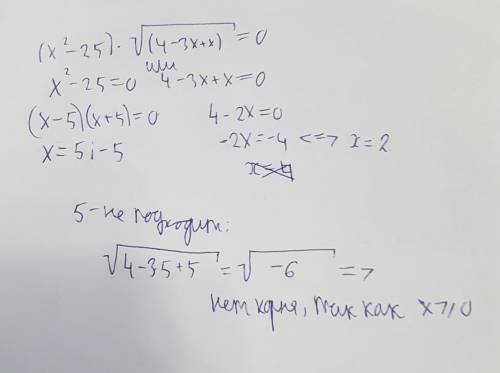 (x²-25)·√(4-3x+x) = 0
или
x²-25=0 4-3x+x=0
(x-5)(x+5)=0 4-2x=0
x=5;-5 -2x=-4 <=> x=2
5-не подходит:
√4-35+5 = √-6 =>
нет корня, так как x≥0